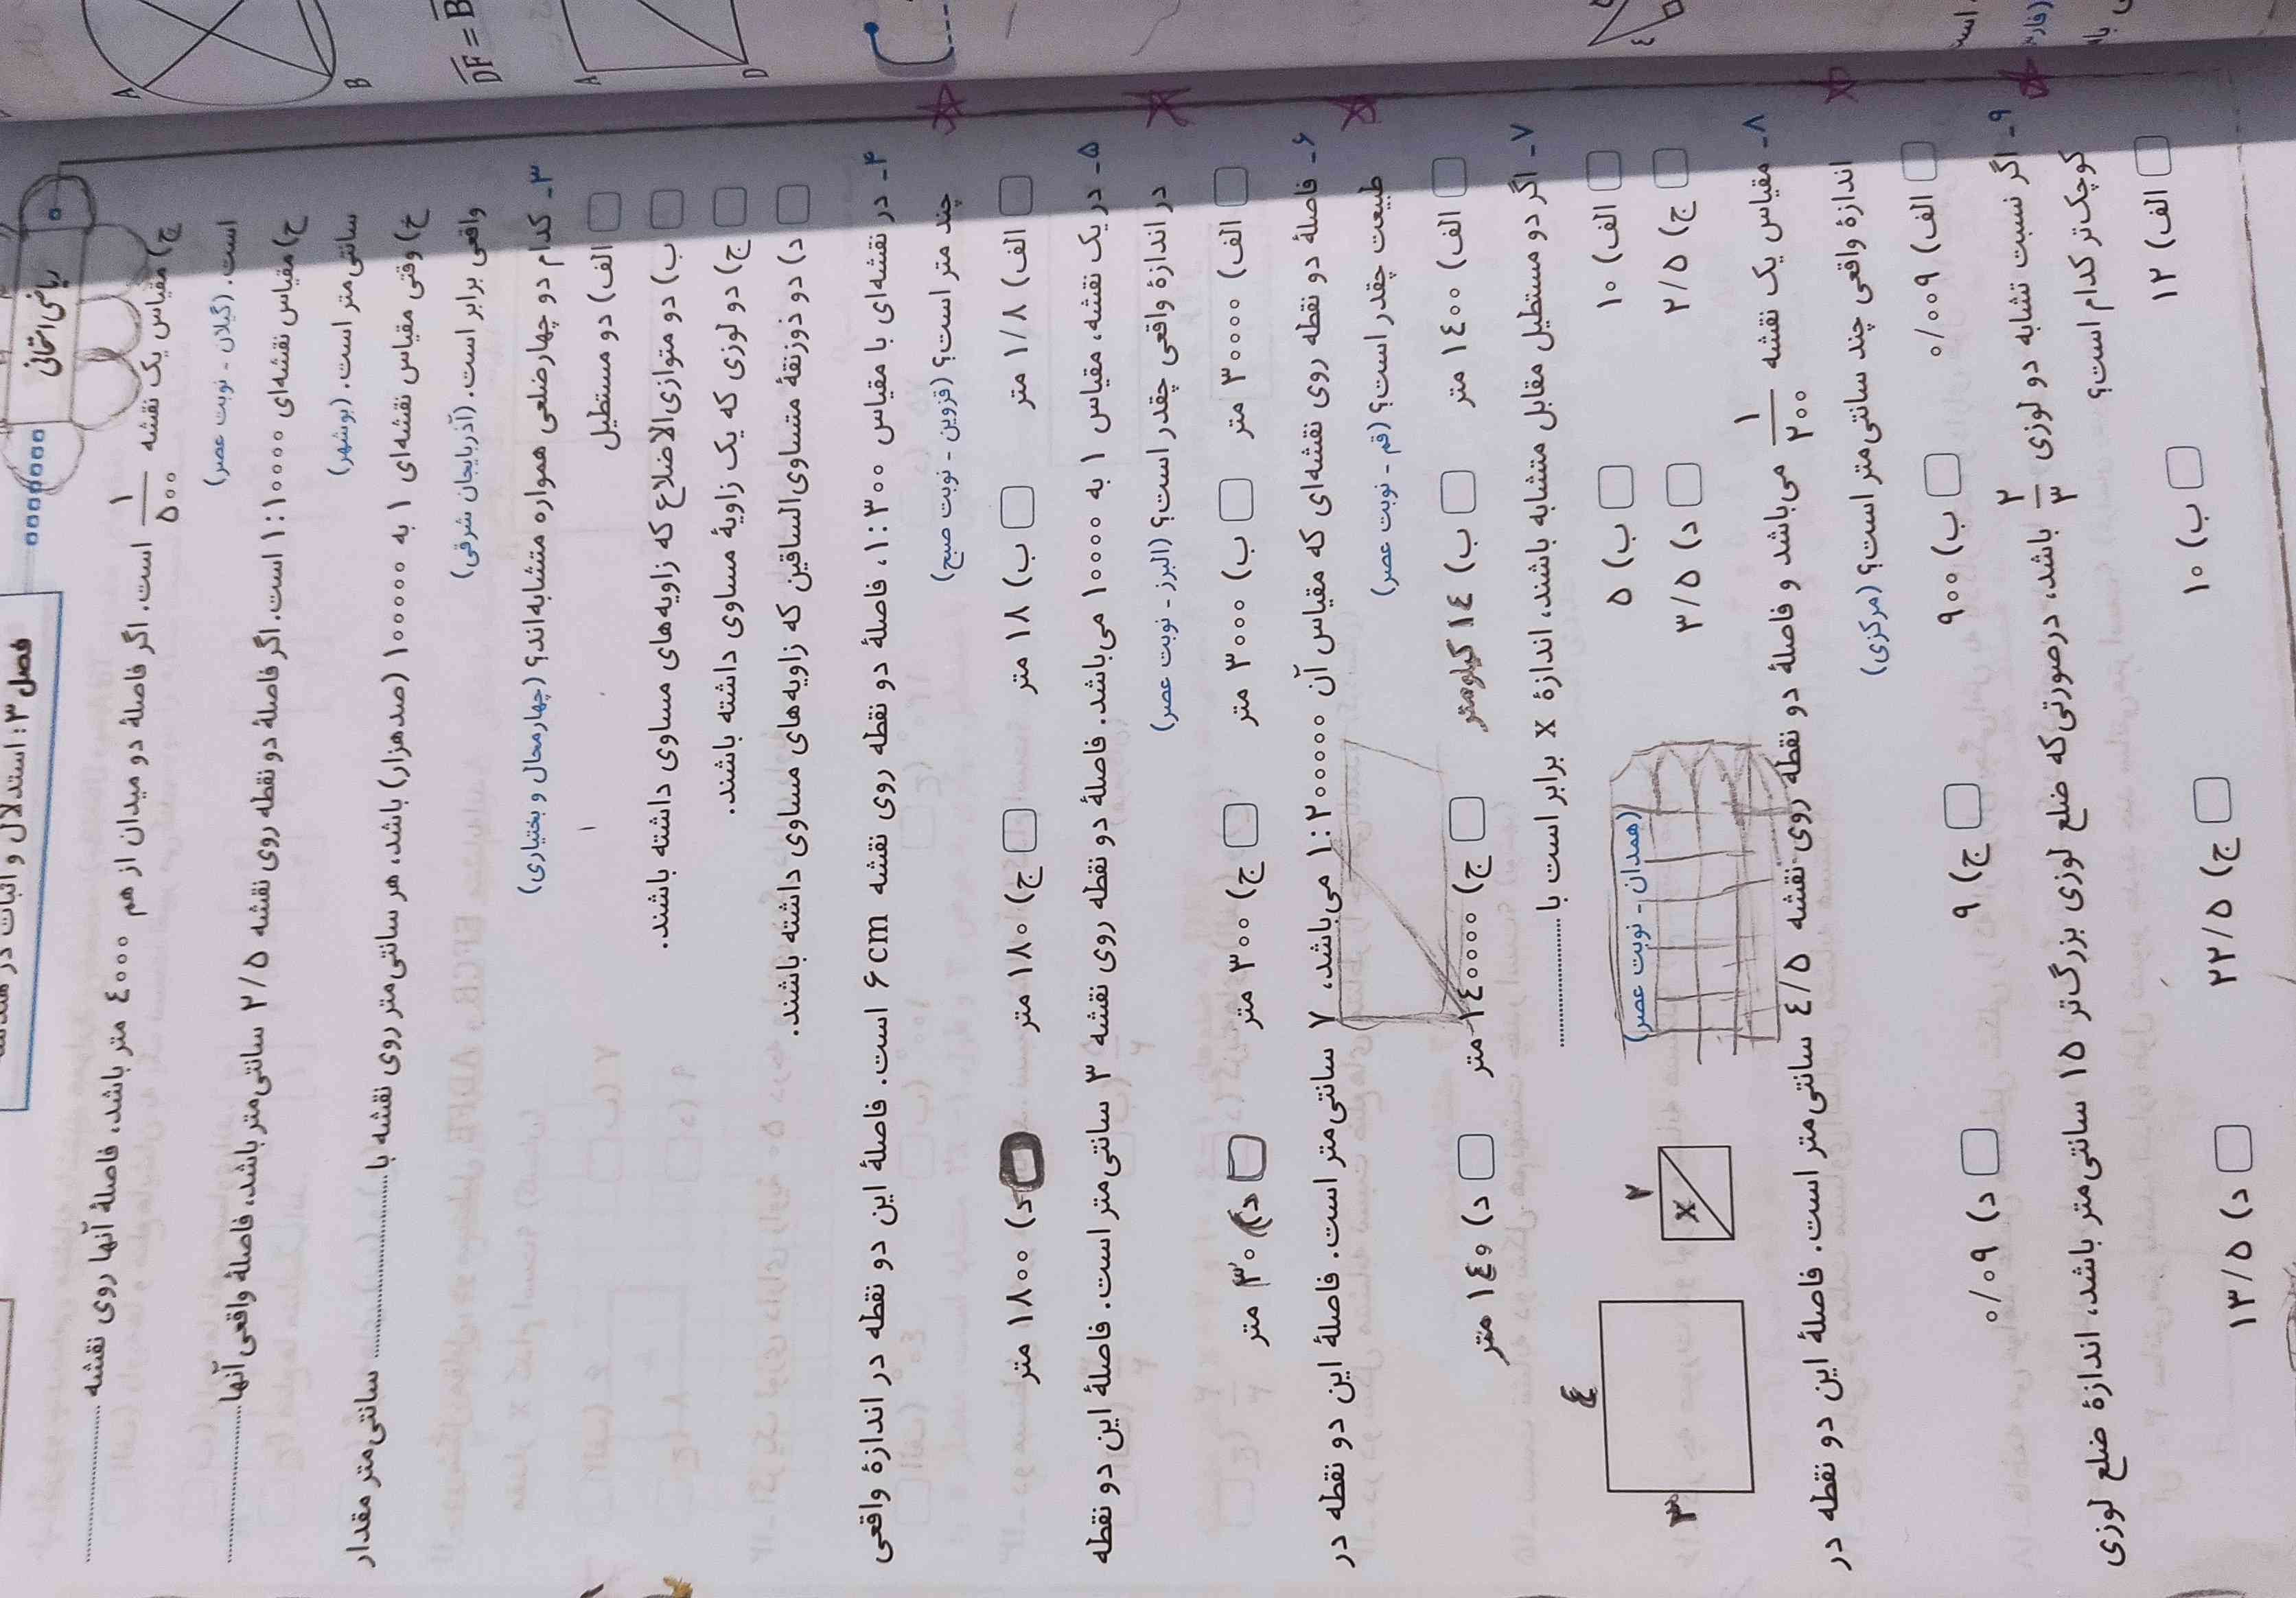 فصل ۳: استدلال و اثبات در هندسه
ریاضی امتحانی
ج) مقیاس یک نقشه ۱/۵۰۰ است. اگر فاصلهٔ دو میدان از هم ۴۰۰۰ متر باشد، فاصلهٔ آنها روی نقشه ............
است. (گیلان - نوبت عصر)
ح) مقیاس نقشه‌ای ۱:۱۰۰۰۰ است. اگر فاصلهٔ دو نقطه روی نقشه ۲/۵ سانتی‌متر باشد، فاصلهٔ واقعی آنها ............
سانتی‌متر است. (بوشهر)
خ) وقتی مقیاس نقشه‌ای ۱ به ۱۰۰۰۰۰ (صدهزار) باشد، هر سانتی‌متر روی نقشه با ............ سانتی‌متر مقدار
واقعی برابر است. (آذربایجان شرقی)
۳- کدام دو چهارضلعی همواره متشابه‌اند؟ (چهارمحال و بختیاری)
الف) دو مستطیل
ب) دو متوازی‌الاضلاع که زاویه‌های مساوی داشته باشند.
ج) دو لوزی که یک زاویهٔ مساوی داشته باشند.
د) دو ذوزنقهٔ متساوی‌الساقین که زاویه‌های مساوی داشته باشند.
۴- در نقشه‌ای با مقیاس ۱:۳۰۰، فاصلهٔ دو نقطه روی نقشه ۶ cm است. فاصلهٔ این دو نقطه در اندازهٔ واقعی
چند متر است؟ (قزوین - نوبت صبح)
الف) ۱/۸ متر ب) ۱۸ متر ج) ۱۸۰ متر د) ۱۸۰۰ متر
۵- در یک نقشه، مقیاس ۱ به ۱۰۰۰۰ می‌باشد. فاصلهٔ دو نقطه روی نقشه ۳ سانتی‌متر است. فاصلهٔ این دو نقطه
در اندازهٔ واقعی چقدر است؟ (البرز - نوبت عصر)
الف) ۳۰۰۰۰ متر ب) ۳۰۰۰ متر ج) ۳۰۰ متر د) ۳۰ متر
۶- فاصلهٔ دو نقطه روی نقشه‌ای که مقیاس آن ۱:۲۰۰۰۰۰ می‌باشد، ۷ سانتی‌متر است. فاصلهٔ این دو نقطه در
طبیعت چقدر است؟ (قم - نوبت عصر)
الف) ۱۴۰۰ متر ب) ۱۴ کیلومتر ج) ۱۴۰۰۰۰ متر د) ۱۴ متر
۷- اگر دو مستطیل مقابل متشابه باشند، اندازهٔ x برابر است با ............
(همدان - نوبت عصر)
الف) ۱۰ ب) ۵
ج) ۲/۵ د) ۳/۵
۴
۳
۲
x
۸- مقیاس یک نقشه ۱/۲۰۰ می‌باشد و فاصلهٔ دو نقطه روی نقشه ۴/۵ سانتی‌متر است. فاصلهٔ این دو نقطه در
اندازهٔ واقعی چند سانتی‌متر است؟ (مرکزی)
الف) ۰/۰۰۹ ب) ۹۰۰ ج) ۹ د) ۰/۰۹
۹- اگر نسبت تشابه دو لوزی ۲/۳ باشد، درصورتی‌که ضلع لوزی بزرگ‌تر ۱۵ سانتی‌متر باشد، اندازهٔ ضلع لوزی
کوچک‌تر کدام است؟
الف) ۱۲ ب) ۱۰ ج) ۲۲/۵ د) ۱۳/۵
A
B
DF = B
A
D
٤